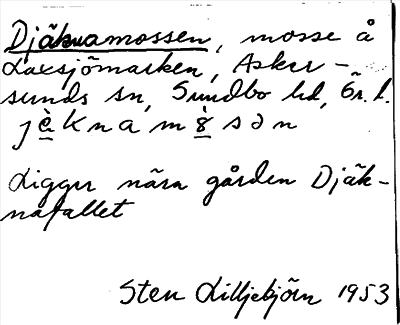 Djäknamossen, mosse å
Laxsjömarken, Asker-
sunds sn, Sundbo hd, Ör. l.
jèknamòsən
Ligger nära gården Djäk-
nafallet
Sten Lilljebjörn 1953